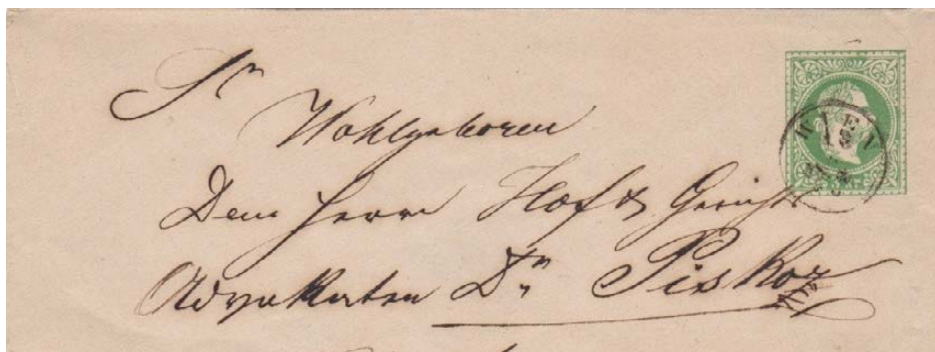 Sr
Wohlgeboren
Dem Herrn Hof & Gerichts
Advokaten Dr Piskoz
WIEN